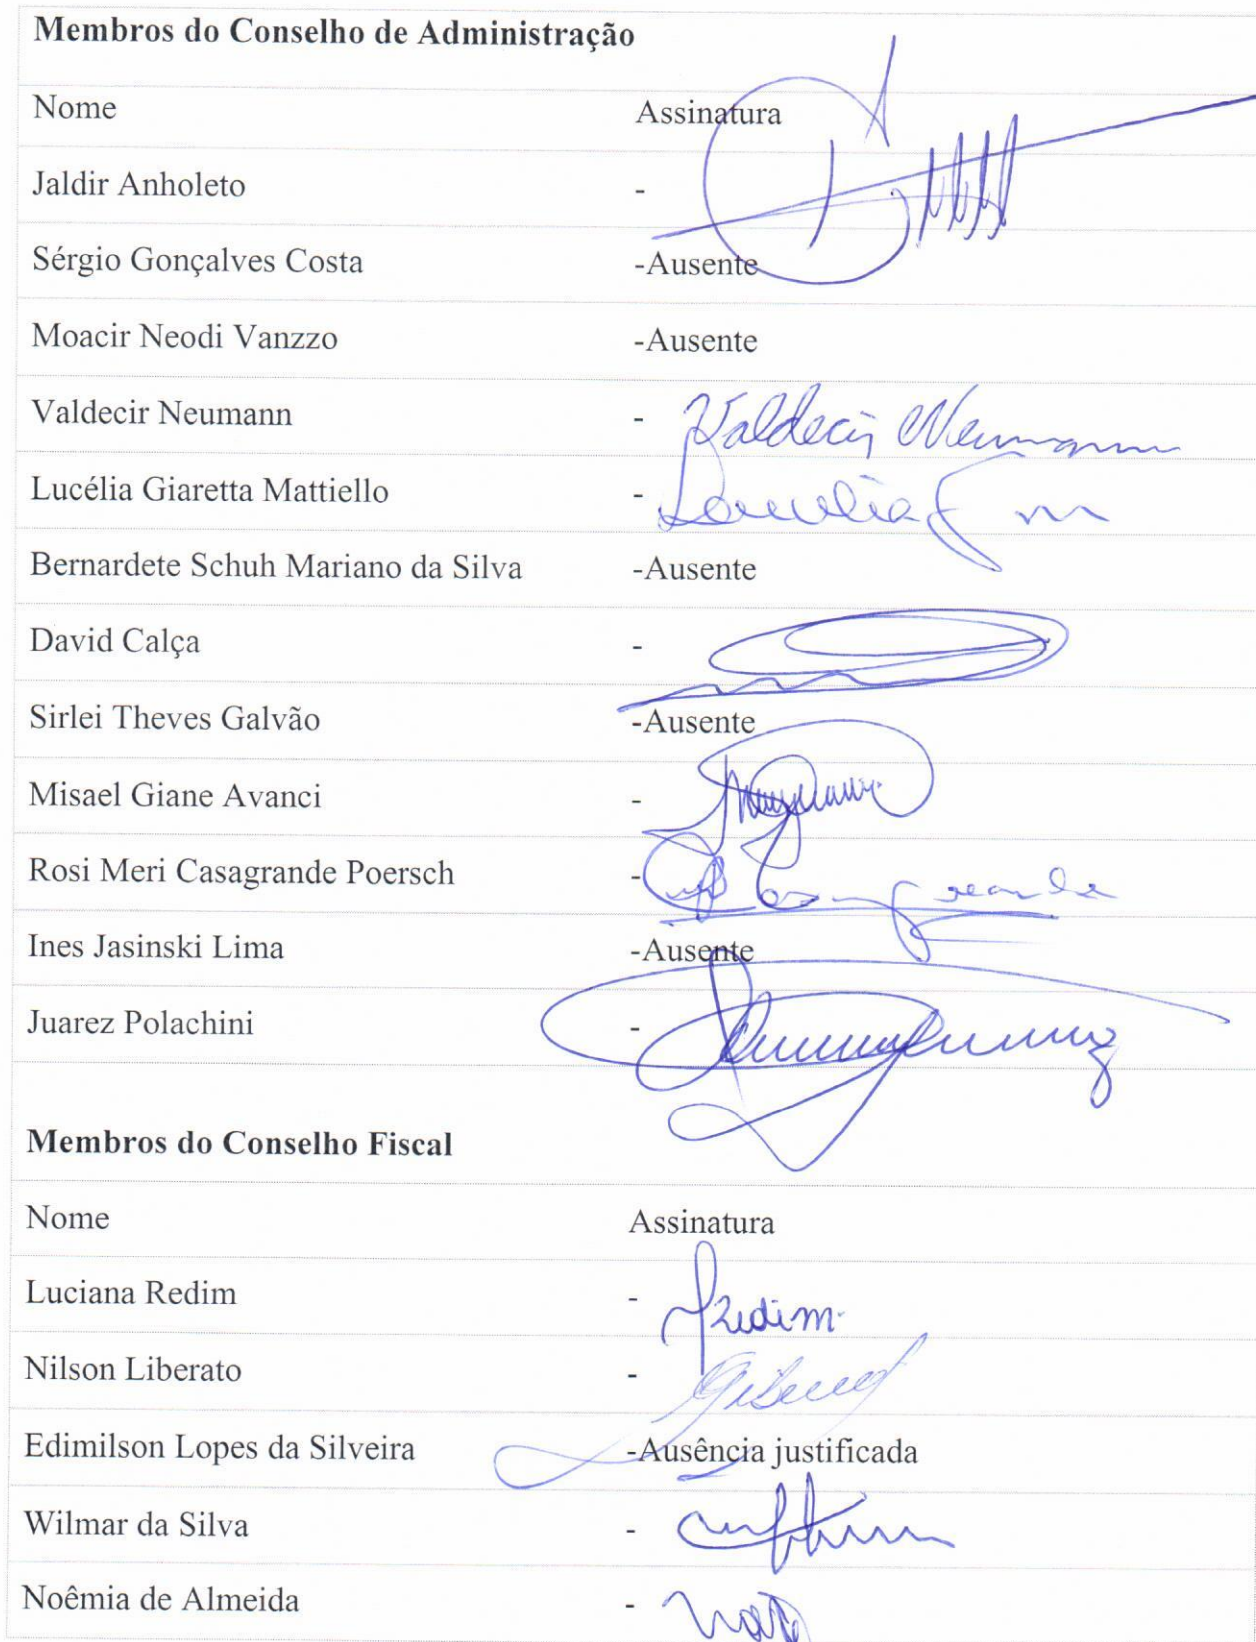 Membros do Conselho de Administração
Nome Assinatura
Jaldir Anholeto -
Sérgio Gonçalves Costa -Ausente
Moacir Neodi Vanzzo -Ausente
Valdecir Neumann - Valdecir Neumann
Lucélia Giaretta Mattiello -
Bernardete Schuh Mariano da Silva -Ausente
David Calça -
Sirlei Theves Galvão -Ausente
Misael Giane Avanci -
Rosi Meri Casagrande Poersch -
Ines Jasinski Lima -Ausente
Juarez Polachini -
Membros do Conselho Fiscal
Nome Assinatura
Luciana Redim - Redim
Nilson Liberato -
Edimilson Lopes da Silveira -Ausência justificada
Wilmar da Silva -
Noêmia de Almeida -